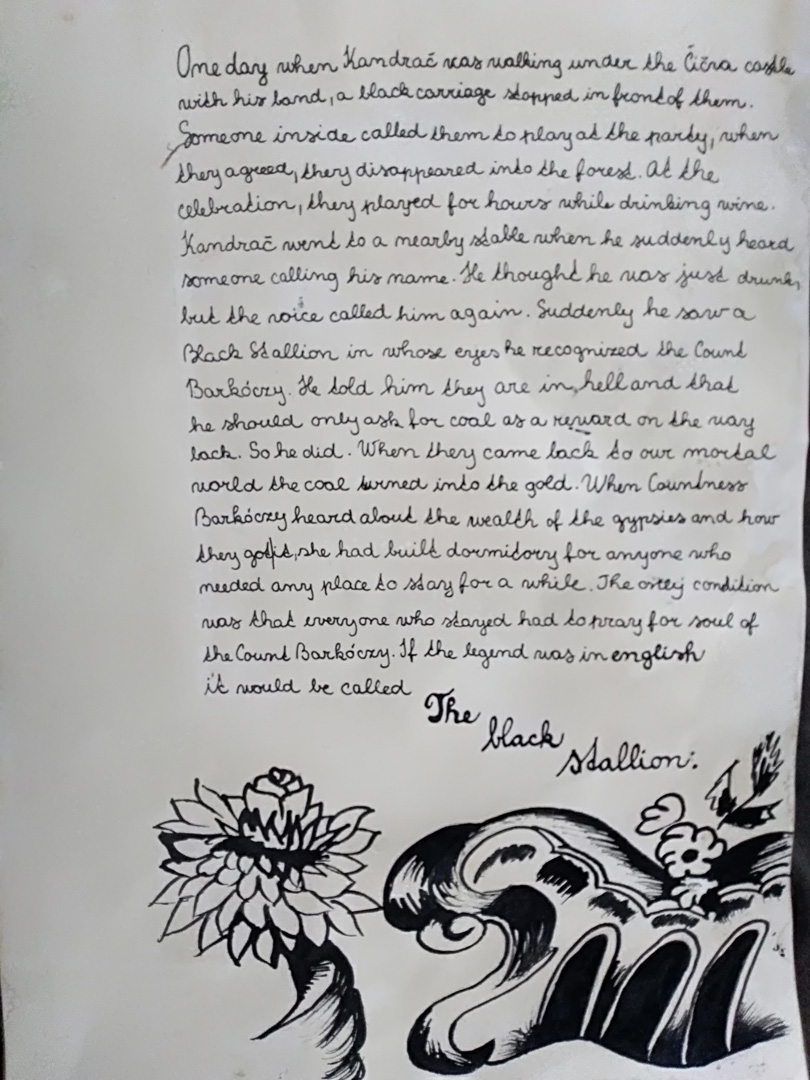 One day when Kandrač was walking under the Čičva castle
with his band, a black carriage stopped in front of them.
Someone inside called them to play at the party, when
they agreed, they disappeared into the forest. At the
celebration, they played for hours while drinking wine.
Kandrač went to a nearby stable when he suddenly heard
someone calling his name. He thought he was just drunk,
but the voice called him again. Suddenly he saw a
Black Stallion in whose eyes he recognized the Count
Barkóczy. He told him they are in hell and that
he should only ask for coal as a reward on the way
back. So he did. When they came back to our mortal
world the coal turned into the gold. When Countness
Barkóczy heard about the wealth of the gypsies and how
they got it, she had built dormitory for anyone who
needed any place to stay for a while. The only condition
was that everyone who stayed had to pray for soul of
the Count Barkóczy. If the legend was in english
it would be called
The
black
stallion.